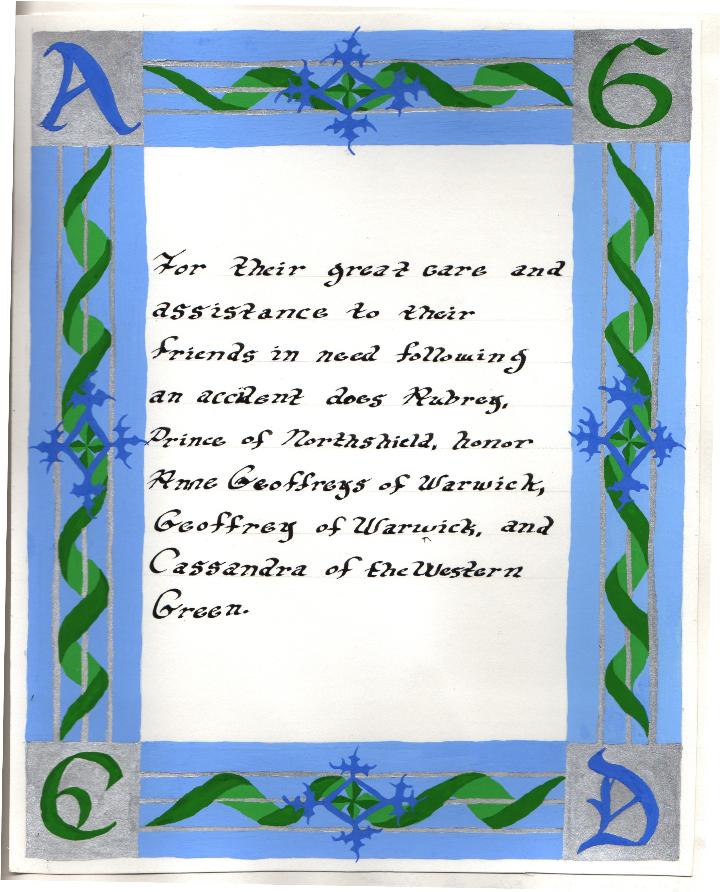 A G
For their great care and
assistance to their
friends in need following
an accident does Aubrey,
Prince of Northshield, honor
Anne Geoffreys of Warwick,
Geoffrey of Warwick, and
Cassandra of the Western
Green.
D